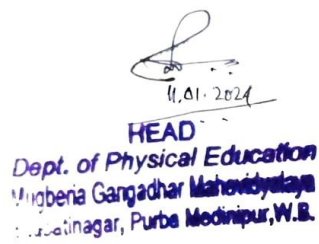 11.01.2024
HEAD
Dept. of Physical Education
Mugberia Gangadhar Mahavidyalaya
Purba Medinipur, W.B.